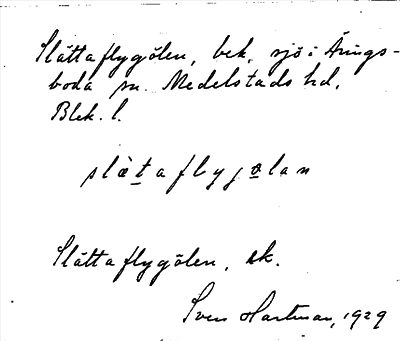 Slättaflygölen, bek. sjö i Årings-
boda sn. Medelstads hd,
Blek. l.
slætaflygolan
Slättaflygölen, sk.
Sven Hartman, 1929